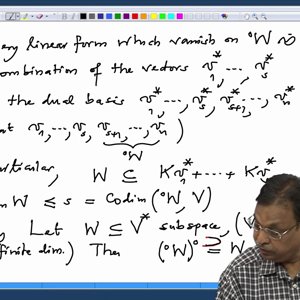 ery linear form which vanish on °W is
ombination of the vectors v₁*, ..., v_s*
the dual basis v₁*, ..., v_s*, v_{s+1}*, ..., v_n*
t v₁, ..., v_s, v_{s+1}, ..., v_n )
°W
rticular, W ⊆ Kv₁* + ... + Kv_s*
m W ≤ s = Codim (°W, V)
Let W ≤ V* subspace, (V
finite dim.) Then (°W)° ⊇ W